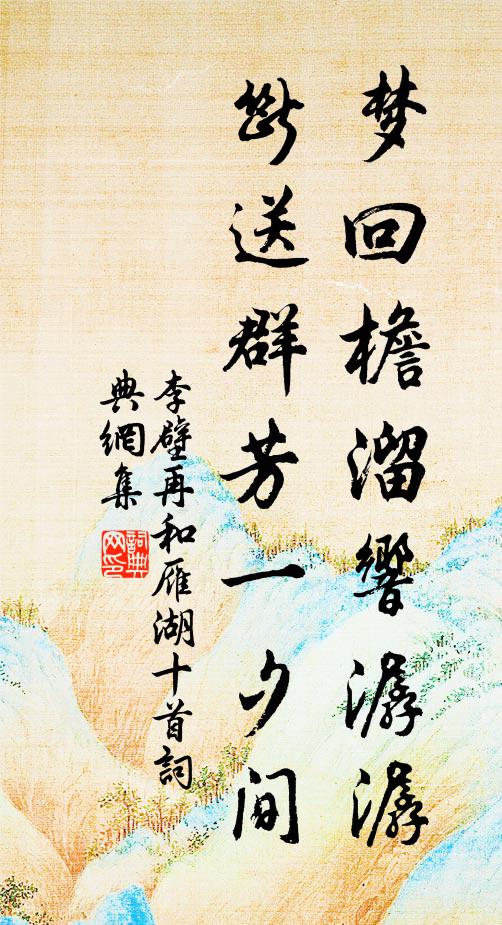 梦回檐溜響潺潺
断送群芳一夕间
李壁再和雁湖十首詞
典網集
詞典网印